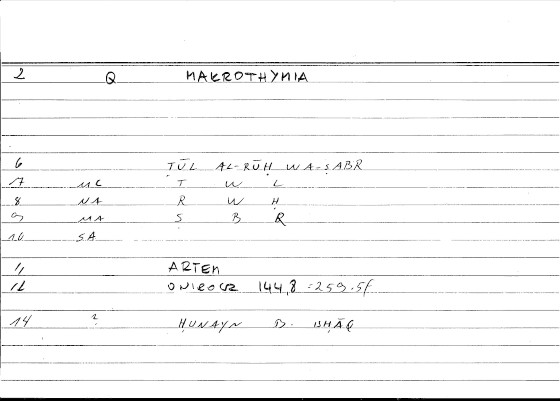 2 Q MAKROTHYMIA
6 ṬŪL AL-RŪḤ WA-ṢABR
7 MC Ṭ W L
8 NA R W Ḥ
9 MA Ṣ B R
10 SA
11 ARTEM
12 ONIROCR 144,8 = 259.5f
14 ? ḤUNAYN B. ISḤĀQ